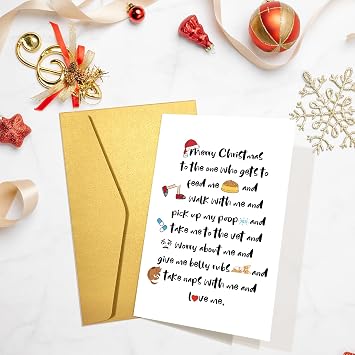 Merry Christmas
to the one who gets to
feed me and
walk with me and
pick up my poop and
take me to the vet and
worry about me and
give me belly rubs and
take naps with me and
love me.